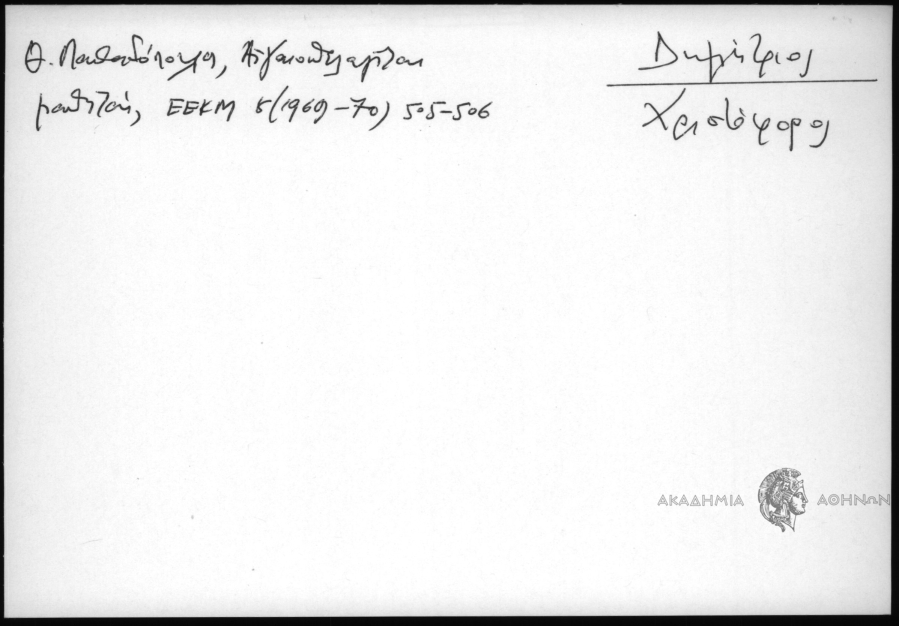 Θ. Παπαδόπουλου, Αιγαιοπελαγίται
μαθηταί, ΕΕΚΜ 8 (1969-70) 505-506
Δημήτριος
Χριστόφορος
ΑΚΑΔΗΜΙΑ ΑΘΗΝΩΝ